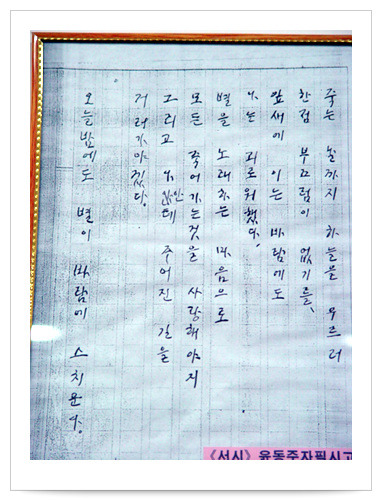 죽는 날까지 하늘을 우르러
한점 부끄럼이 없기를、
잎새에 이는 바람에도
나는 괴로워했다.
별을 노래하는 마음으로
모든 죽어가는것을 사랑해야지
그리고 나안테 주어진 길을
거러가야겠다.
오늘밤에도 별이 바람에 스치운다.
《서시》 윤동주자필시고